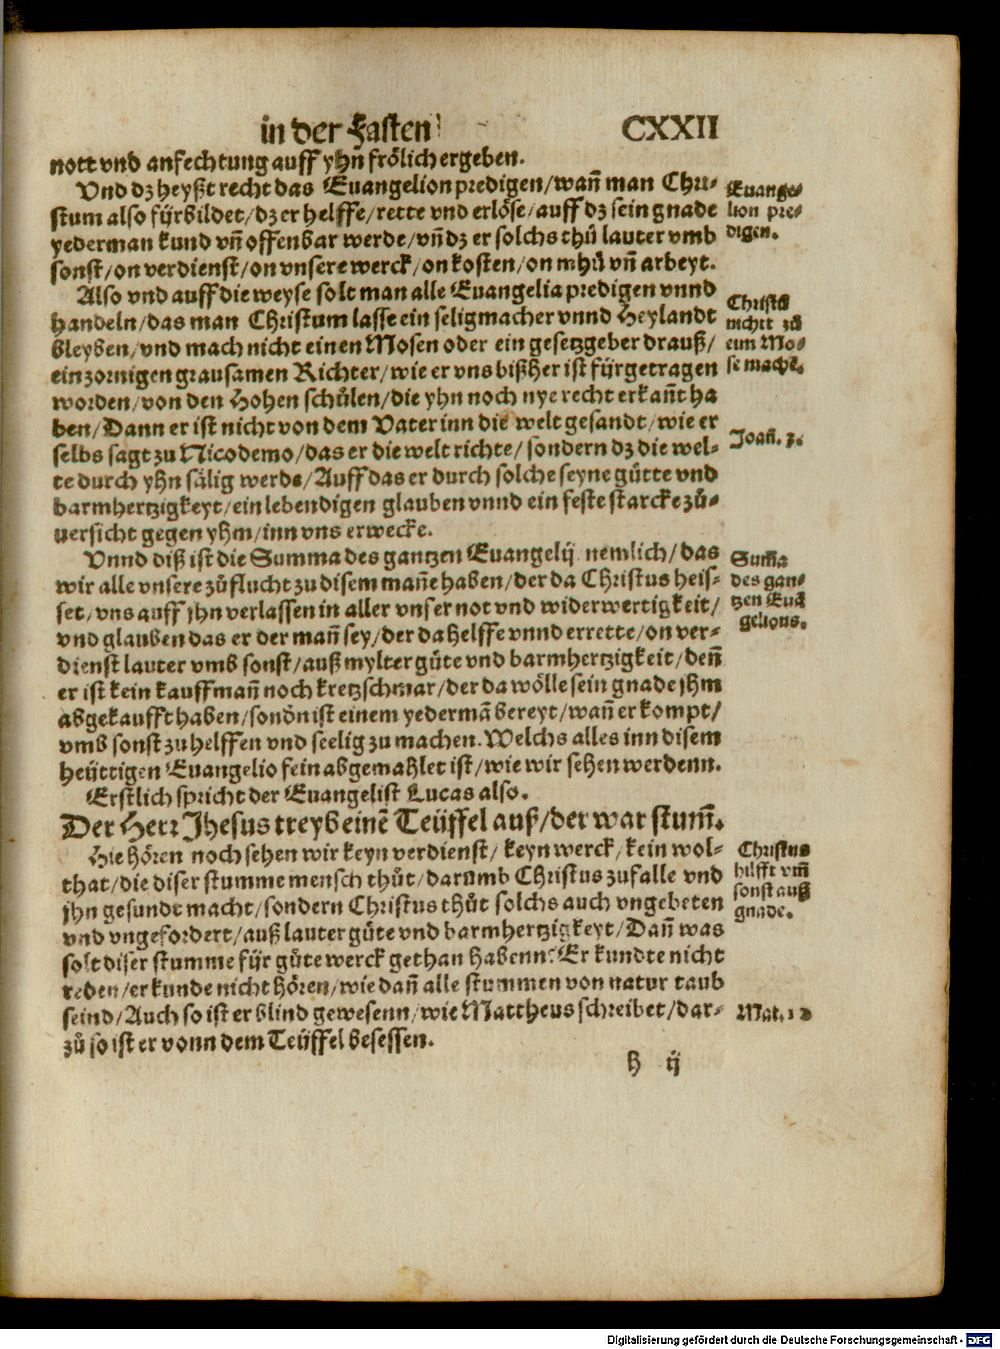 in der Fasten CXXII
nott vnd anfechtung auff yhn frölich ergeben.
Vnd dz heyßt recht das Euangelion predigen/wañ man Chri-
stum also fürbildet/dz er helffe/rette vnd erlöse/auff dz sein gnade
yederman kund vñ offenbar werde/vñ dz er solchs thů lauter vmb
sonst/on verdienst/on vnsere werck/on kosten/on mhů vñ arbeyt.
Also vnd auff die weyse solt man alle Euangelia predigen vnnd
handeln/das man Christum lasse ein seligmacher vnnd Heylandt
bleyben/vnd mach nicht einen Mosen oder ein gesetzgeber drauß/
ein zornigen grausamen Richter/wie er vns bißher ist fürgetragen
worden/von den Hohen schůlen/die yhn noch nye recht erkañt ha
ben/Dann er ist nicht von dem Vater inn die welt gesandt/wie er
selbs sagt zu Nicodemo/das er die welt richte/sondern dz die wel-
te durch yhn sälig werde/Auff das er durch solche seyne gütte vnd
barmhertzigkeyt/ein lebendigen glauben vnnd ein feste starcke zů-
uersicht gegen yhm/inn vns erwecke.
Vnnd diß ist die Summa des gantzen Euangelij nemlich/das
wir alle vnsere zůflucht zu disem mañe haben/der da Christus heis-
set/vns auff jhn verlassen in aller vnser not vnd widerwertigkeit/
vnd glauben das er der mañ sey/der da helffe vnnd errette/on ver-
dienst lauter vmb sonst/auß mylter güte vnd barmhertzigkeit/deñ
er ist kein kauffmañ noch kretzschmar/der da wölle sein gnade jhm
abgekaufft haben/sonđn ist einem yedermã bereyt/wañ er kompt/
vmb sonst zu helffen vnd seelig zu machen. Welchs alles inn disem
heüttigen Euangelio fein abgemahlet ist/wie wir sehen werdenn.
Erstlich spricht der Euangelist Lucas also.
Der Herr Jhesus treyb einẽ Teüffel auß/der war stum̃.
Hie hören noch sehen wir keyn verdienst/keyn werck/kein wol-
that/die diser stumme mensch thůt/darumb Christus zufalle vnd
jhn gesundt macht/sondern Christus thůt solchs auch vngebeten
vnd vngefordert/auß lauter güte vnd barmhertzigkeyt/Dañ was
solt diser stumme für gůte werck gethan habenn? Er kundte nicht
reden/er kunde nicht hören/wie dañ alle stummen von natur taub
seind/Auch so ist er blind gewesenn/wie Mattheus schreibet/dar-
zů so ist er vonn dem Teüffel besessen.
h ij
Euange-
lion pre-
digen.
Christũ
nicht zů
eim Mo-
se mache.
Joañ. 3.
Sum̃a
des gan-
tzen Euã
gelions.
Christus
hilfft vm̃
sonst auß
gnade.
Mat. 12
Digitalisierung gefördert durch die Deutsche Forschungsgemeinschaft - DFG